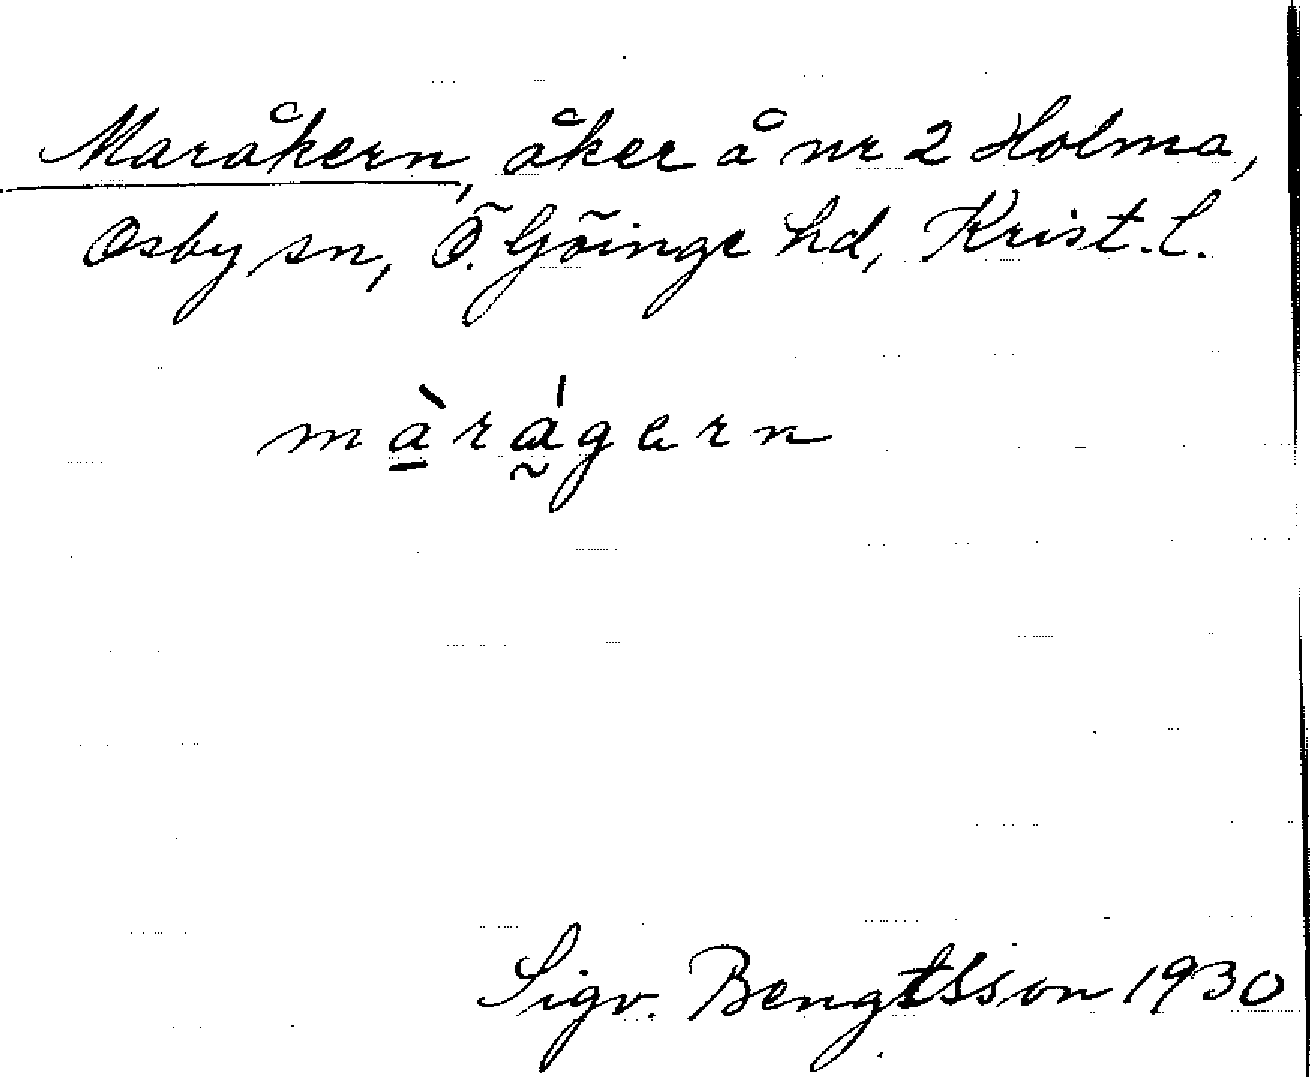 Maråkern, åker å nr 2 Holma,
Osby sn, Ö. Göinge hd, Krist. l.
mà̠rá̰gern
Sigv. Bengtsson 1930